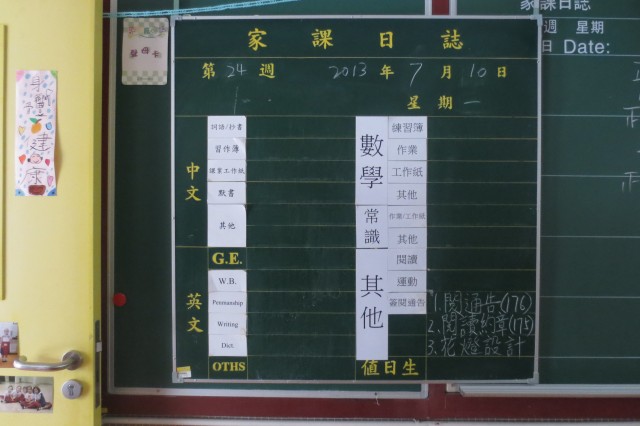 家課日誌
第24週 2013年7月10日
星期一
中文
詞語/抄書
習作簿
默書
其他
G.E.
英文
W.B.
Penmanship
Writing
Dict.
OTHS
數學
練習簿
作業
工作紙
其他
常識
作業/工作紙
其他
其他
閱讀
運動
簽閱通告
1.閱通告(176)
2.閱讀約章(175)
3.花燈設計
值日生
身體健康
家課日誌
週 星期
日 Date: